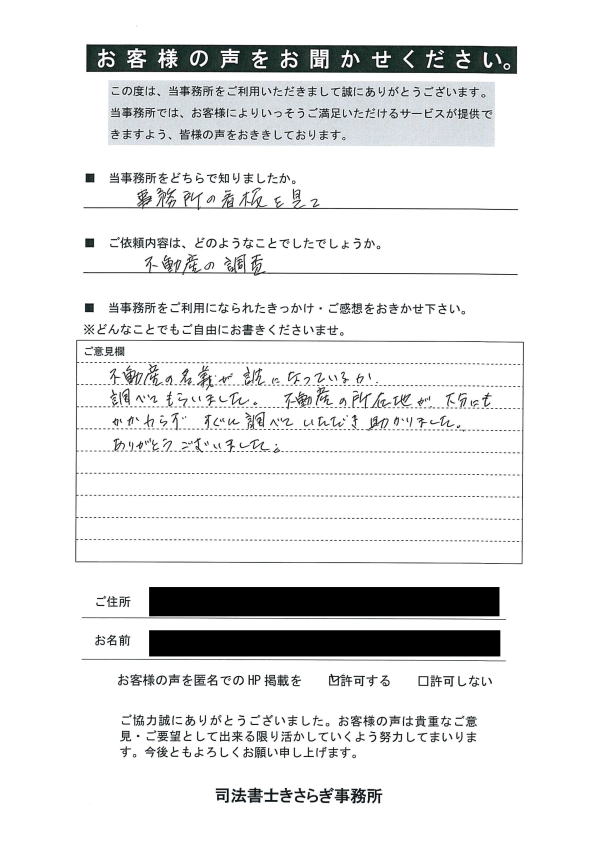 お客様の声をお聞かせください。
この度は、当事務所をご利用いただきまして誠にありがとうございます。
当事務所では、お客様によりいっそうご満足いただけるサービスが提供で
きますよう、皆様の声をおききしております。
■ 当事務所をどちらで知りましたか。
事務所の看板を見て
■ ご依頼内容は、どのようなことでしたでしょうか。
不動産の調査
■ 当事務所をご利用になられたきっかけ・ご感想をおきかせ下さい。
※どんなことでもご自由にお書きくださいませ。
ご意見欄
不動産の名義が誰になっているか、
調べてもらいました。不動産の所在地が大分にも
かかわらず すぐに調べていただき助かりました。
ありがとうございました。
ご住所
お名前
お客様の声を匿名でのHP掲載を ☑許可する □許可しない
ご協力誠にありがとうございました。お客様の声は貴重なご意
見・ご要望として出来る限り活かしていくよう努力してまいりま
す。今後ともよろしくお願い申し上げます。
司法書士きさらぎ事務所